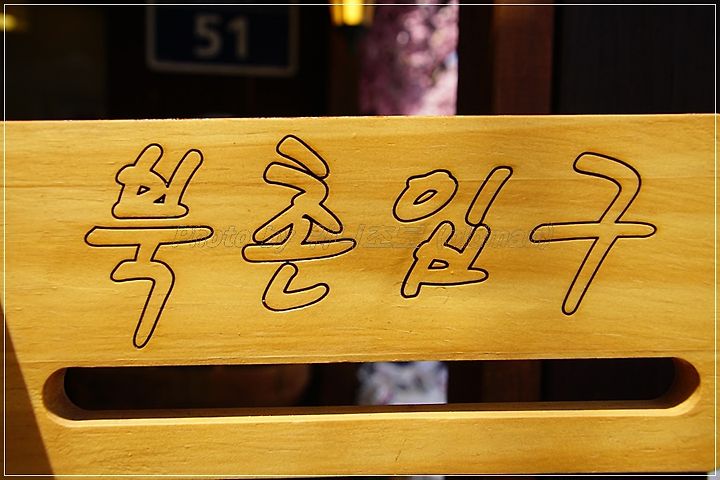 51
북촌입구
Photo by